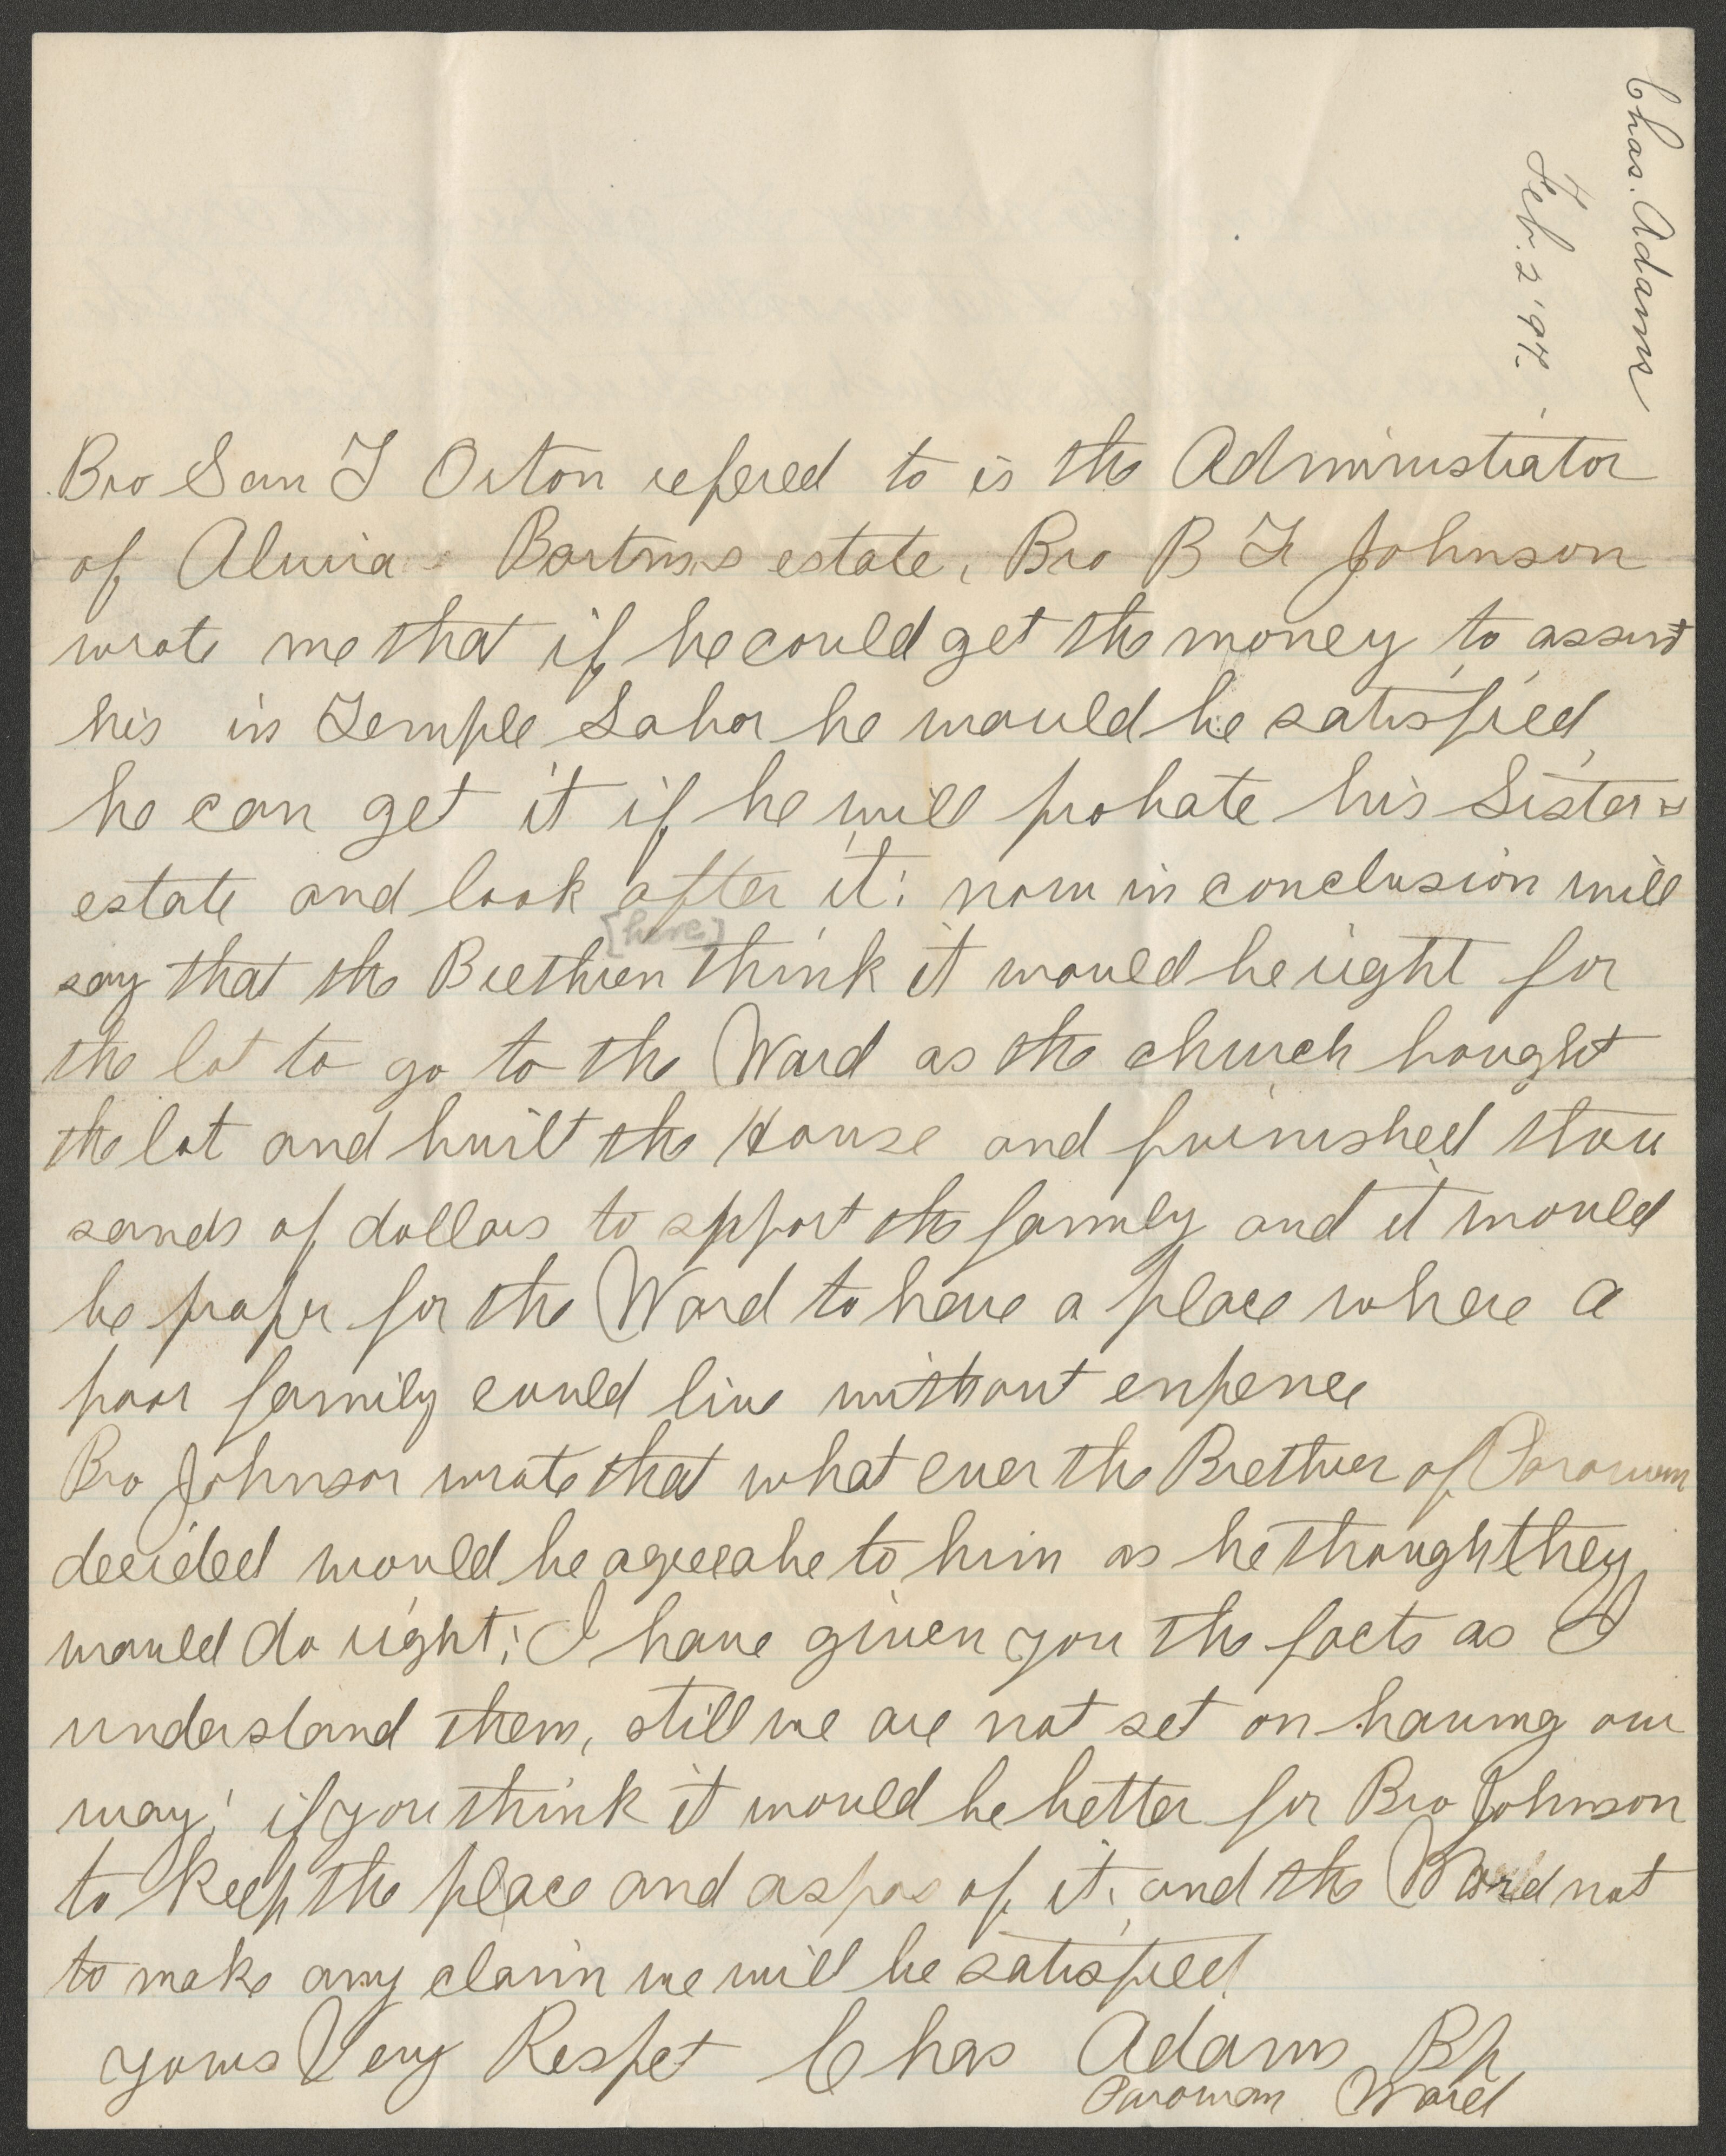 Chas. Adams
Feb. 2 '94.
Bro Sam T Orton refered to is the Administrator
of Almira Bartons estate, Bro B F Johnson
wrote me that if he could get the money to assist
his in Temple Labor he would be satisfied,
he can get it if he will probate his Sisters
estate and look after it: now in conclusion will
[here]
say that the Brethren think it would be right for
the lot to go to the Ward as the church bought
the lot and built the House and furinshed thou
sands of dollars to spport the family and it would
be proper for the Ward to have a place where a
poor family could live without expence
Bro Johnson wrote that what ever the Brethren of Parowan
decided would be agreeabe to him as he thought they
would do right; I have given you the facts as I
understand them, still we are not set on having our
way; if you think it would be better for Bro Johnson
to keep the place and aspos of it, and the Ward not
to make any claim we will be satisfied
yours Very Respet Chas Adams Bp
Parowan Ward